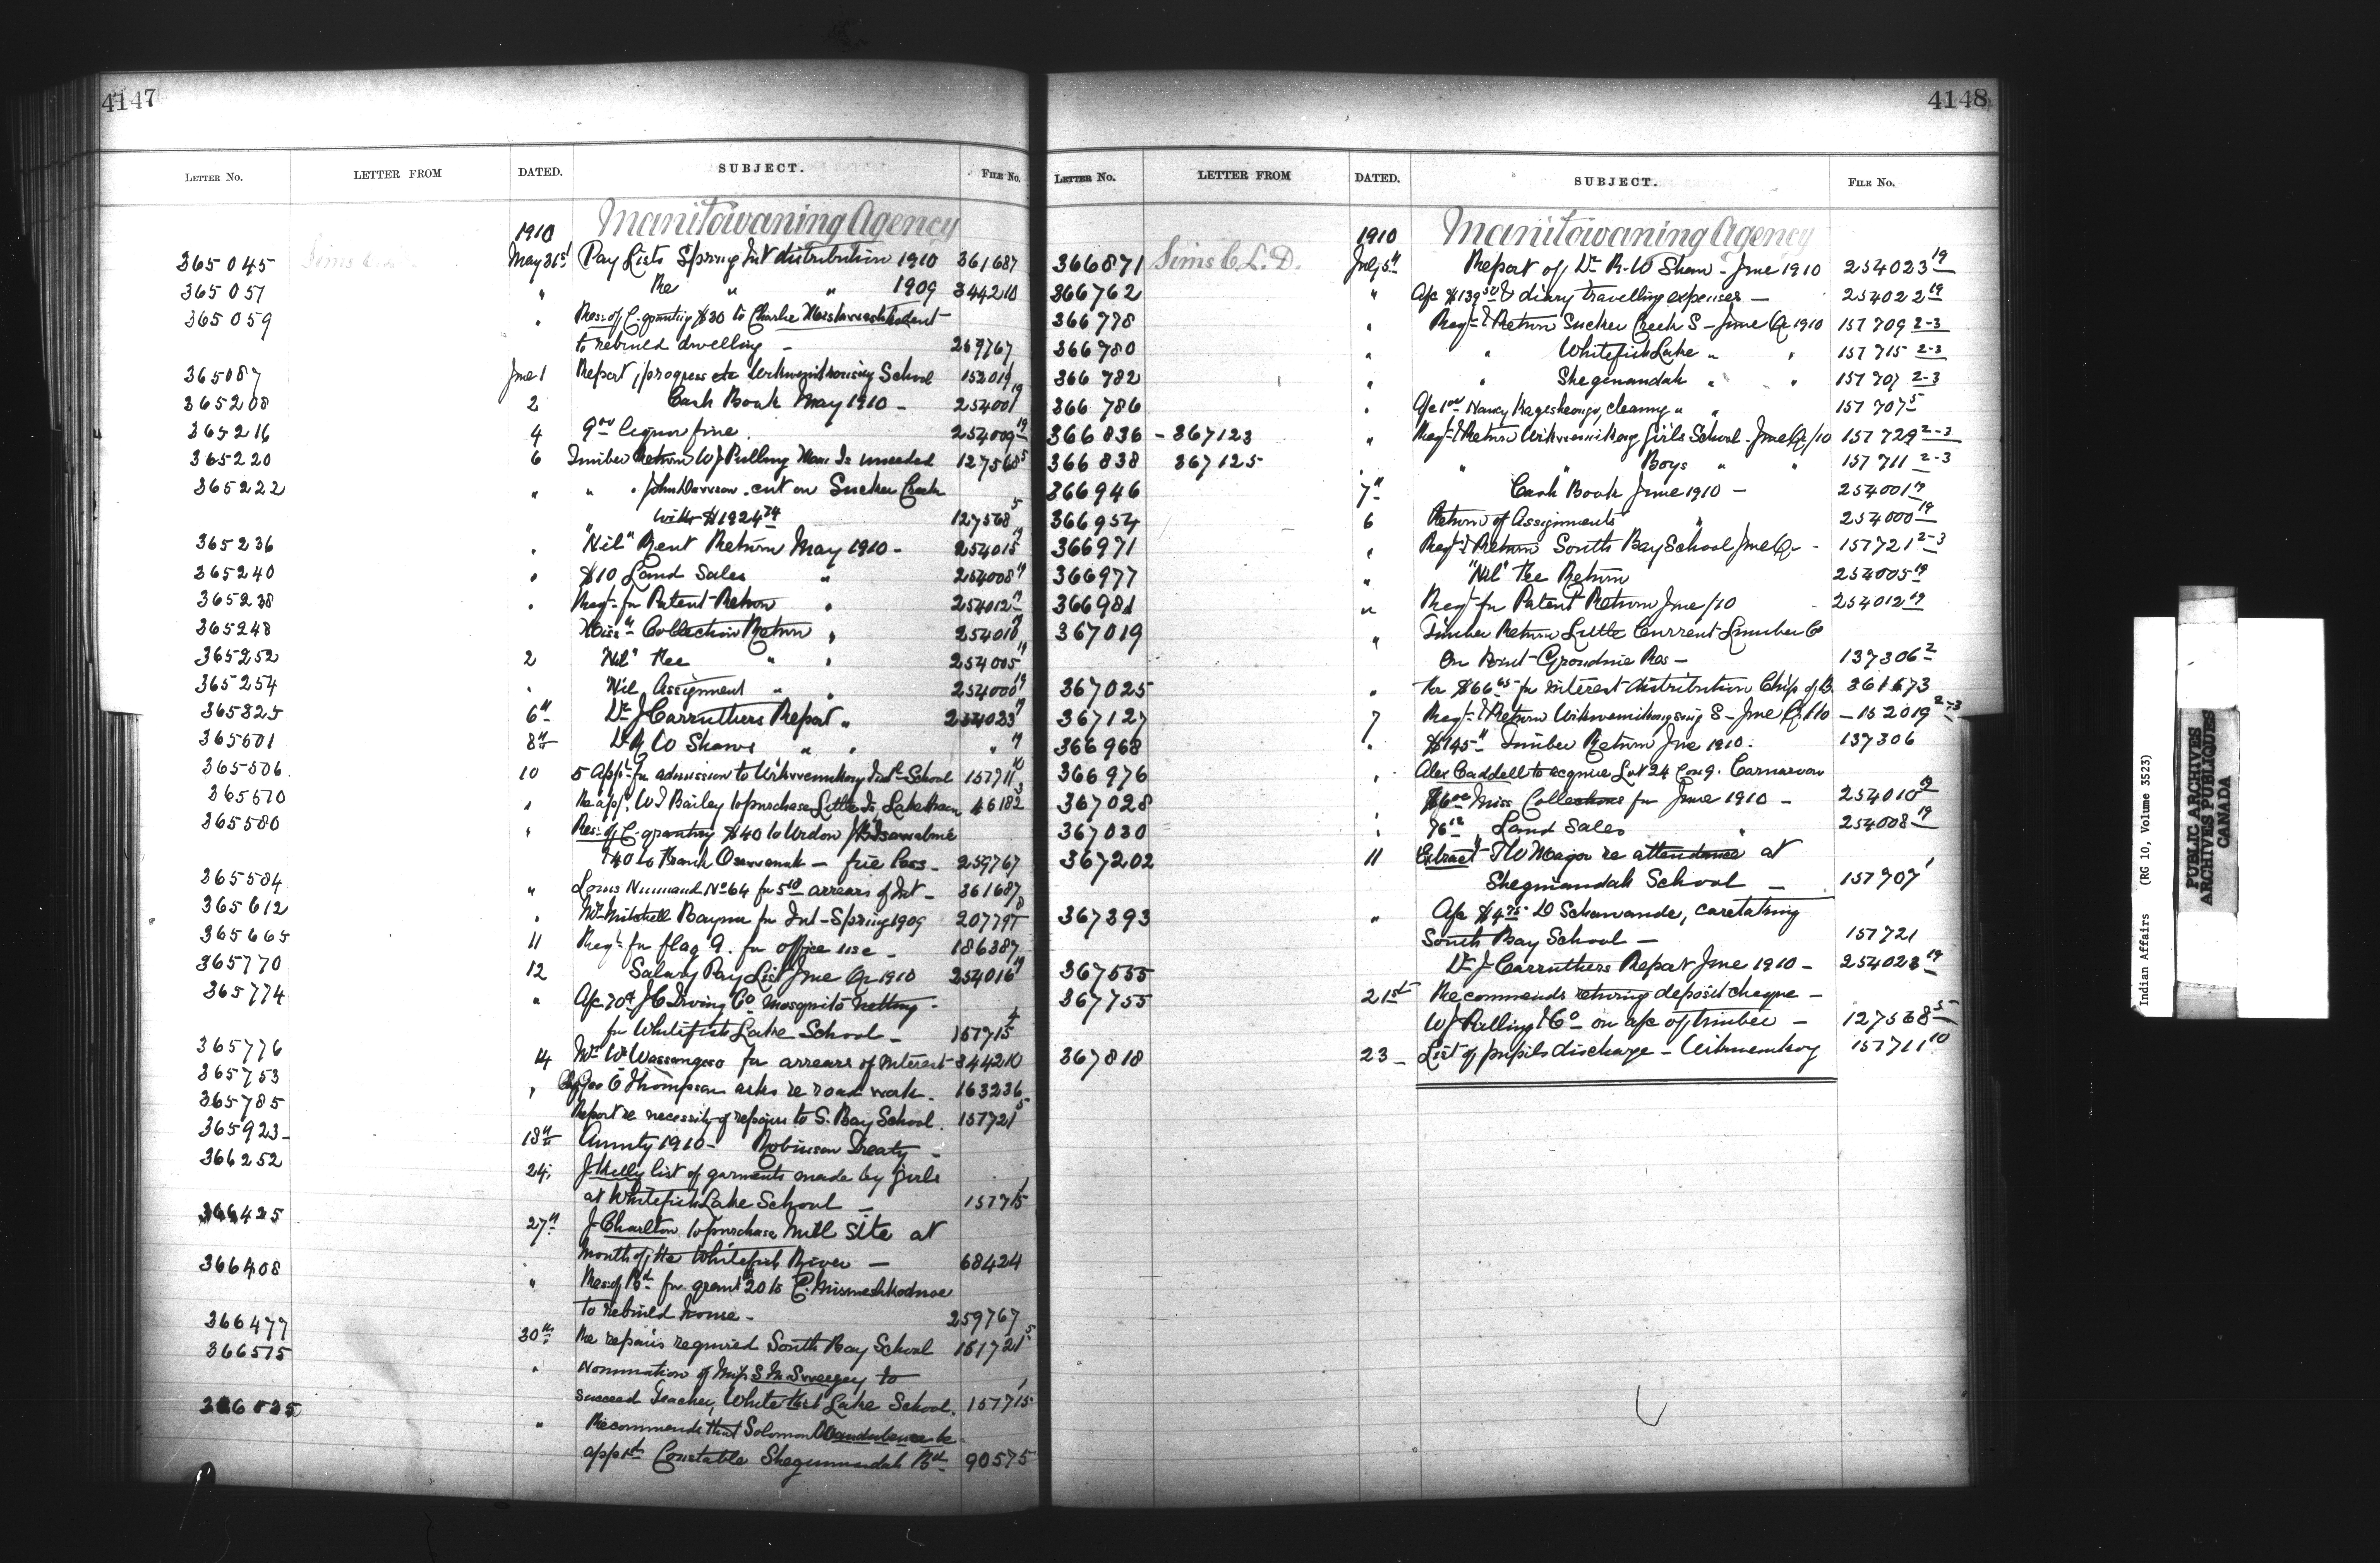 4147
LETTER NO. LETTER FROM DATED. SUBJECT. FILE NO.
1910 Manitowaning Agency
365045 Sims May 31st Pay Lists Spring Int distribution 1910 361687
365051 " Re " " 1909 344210
365059 " Res: of C. granting $30 to Charlie
to rebuild dwelling - 259767
365087 June 1 Report, progress etc Wikwemikongsing School 152019
365208 2 Cash Book May 1910 - 254001 19
365216 4 9.00 liquor fine. 254009 19
365220 6 Timber Return W J Pulling Man: Is unceded 127568 5
365222 " " " John Davison cut on Sucker Creek
with $1924.74 127568 5
365236 " "Nil" Rent Return May 1910 - 254015 19
365240 " $10 Land Sales " 254008 19
365238 " Req: for Patent Return " 254012 19
365248 " Collection Return " 254010 19
365252 2 "Nil" Fee " " 254005 19
365254 " Nil Assignment " " 254000 19
365325 6th Dr J Carruthers Report " 254023 19
365501 8th Dr R W Shaws " " " 19
365506 10 5 App: for admission to Wikwemikong Ind: School 157711 10
365510 " Re app: W J Bailey to purchase Little Is, Lake Huron 46182
365580 " Res: of C. granting $40 to Widow
& 40 to Frank - fire loss - 259767
365584 " Louis No 64 for arrears of Int - 361687
365612 " Mrs Mitchell for Int - Spring 1909 207797
365665 11 Req: for flag 9. for office use - 186387
365770 12 Salary Pay List June Qr 1910 254016 19
365774 " A/c J C Irving Co Mosquito netting -
for Whitefish Lake School - 157715 4
365776 14 for arrears of interest 344210
365753 " Geo C Thompson asks re road work. 163236
365785 Report re necessity of repairs to S. Bay School. 157721 5
365923 - 18th Annuity 1910 - Robinson Treaty -
366252 24; J Kelly list of garments made by girls
at Whitefish Lake School - 157715 1
366425 27th J Charlton to purchase Mill site at
Mouth of the Whitefish River - 68424
366408 " Res of Bd: for grant 20 to C.
to rebuild home - 259767
366477 30th Re repairs required South Bay School 157721 5
366575 " Nomination of Miss S McSweeney to
succeed Teacher, White fish Lake School. 157715 1
" Recommends that Solomon be
app'td Constable Shegumandah Bd 90575
4148
LETTER NO. LETTER FROM DATED. SUBJECT. FILE NO.
1910 Manitowaning Agency
366871 Sims C. L. D. July 5th Report of Dr R. W Shaw - June 1910 254023 19
366762 " A/c $139.50 & diary travelling expenses - 254022 19
366778 " Req: & Return Sucker Creek S - June Qr 1910 157709 2-3
366780 " " Whitefish Lake " " 157715 2-3
366782 " " Shegumandah " " 157707 2-3
366786 " A/c 1.00 Nancy Kagesheongai, cleaning " " 157707 5
366836 - 367123 " Req: & Return Wikwemikong Girls School - June Qr /10 157729 2-3
366838 367125 " " Boys " " 157711 2-3
366946 7th Cash Book June 1910 - 254001 19
366954 6 Return of Assignments " 254000 19
366971 " Req: & Return South Bay School June Qr - 157721 2-3
366977 " "Nil" Fee Return 254005 19
366981 " Req: for Patent Return June /10 254012 19
367019 " Timber Return Little Current Lumber Co
on Point Grondine Res - 137306 2
367025 " For $66.65 for interest distribution Chip of B. 361673
367127 7 Req: & Return Wikwemikongsing S - June Qr /10 - 152019 2-3
366968 " $145 Timber Return June 1910. 137306
366976 " Alex Caddell to acquire Lot 24 Con 9. Carnarvon
367028 " $6.00 Miss Collections for June 1910 - 254010 19
367030 " 76.12 Land Sales " 254008 19
367202 11 Extract J W Major re attendance at
Shegmandah School - 157707 1
367393 " A/c $4.75 D Schawande, caretaking
South Bay School - 157721
367555 Dr J Carruthers Report June 1910 - 254023 19
367755 21st Recommends retiring deposit cheque -
W J Pulling & Co - on a/c of timber - 127568 5
367818 23 - List of pupils discharge - Wikwemikong 157711 10
Indian Affairs (RG 10, Volume 3523)
PUBLIC ARCHIVES
ARCHIVES PUBLIQUES
CANADA